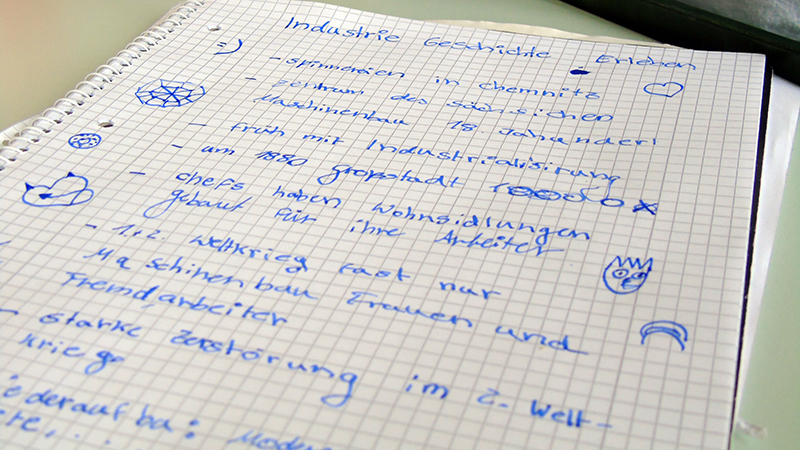 Industrie Geschichte Erleben
=)
- spinnereien in chemnitz
- zentrum des sächsichen
Maschinenbau 18. Jahanderl
- früh mit Industrialisirung
- um 1880 Großstadt
- chefs haben Wohnsidlungen
gebaut für ihre Arbeiter
- 1+2. Weltkrieg fast nur
Maschinenbau Frauen und
Fremdarbeiter
- starke Zerstörung im 2. Welt-
kriege
iederaufba: